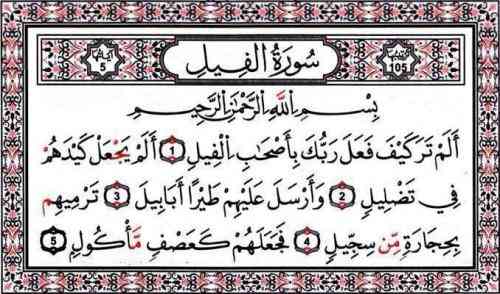 آياتها 5 سُورَةُ الْفِيلِ ترتيبها 105
بِسْمِ اللَّهِ الرَّحْمَٰنِ الرَّحِيمِ
أَلَمْ تَرَ كَيْفَ فَعَلَ رَبُّكَ بِأَصْحَابِ الْفِيلِ 1 أَلَمْ يَجْعَلْ كَيْدَهُمْ
فِي تَضْلِيلٍ 2 وَأَرْسَلَ عَلَيْهِمْ طَيْرًا أَبَابِيلَ 3 تَرْمِيهِم
بِحِجَارَةٍ مِّن سِجِّيلٍ 4 فَجَعَلَهُمْ كَعَصْفٍ مَّأْكُولٍ 5